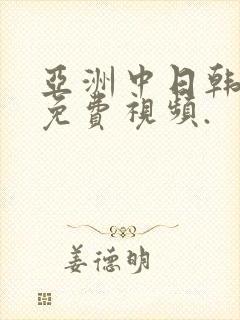 亞洲中日韩
免費視頻.
姜德明